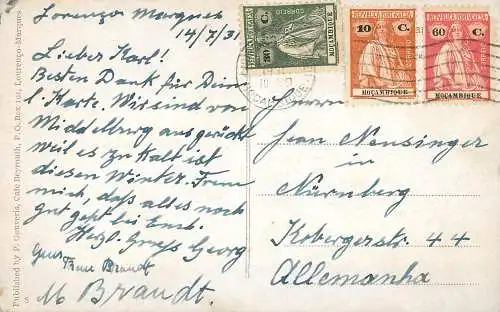 Lorenzo Marques
14/7/31
Lieber Karl!
Besten Dank für Dein
l. Karte. Wir sind von
Middelburg ausgerückt
weil es zu kalt ist
diesen Winter. Freue
mich, daß alles noch
gut geht bei Euch.
Herzl. Gruß Georg
Gruss Frau Brandt
M Brandt.
Herrn
Jean Neusinger
in
Nürnberg
Kobergerstr. 44
Allemanha
REPUBLICA PORTUGUESA
CORREIO
80 C.
MOÇAMBIQUE
REPUBLICA PORTUGUESA
10 C.
MOÇAMBIQUE
REPUBLICA PORTUGUESA
60 C.
MOÇAMBIQUE
Published by P. Gunneris, Cafe Beyrouth, P.O. Box 191, Lourenço-Marques